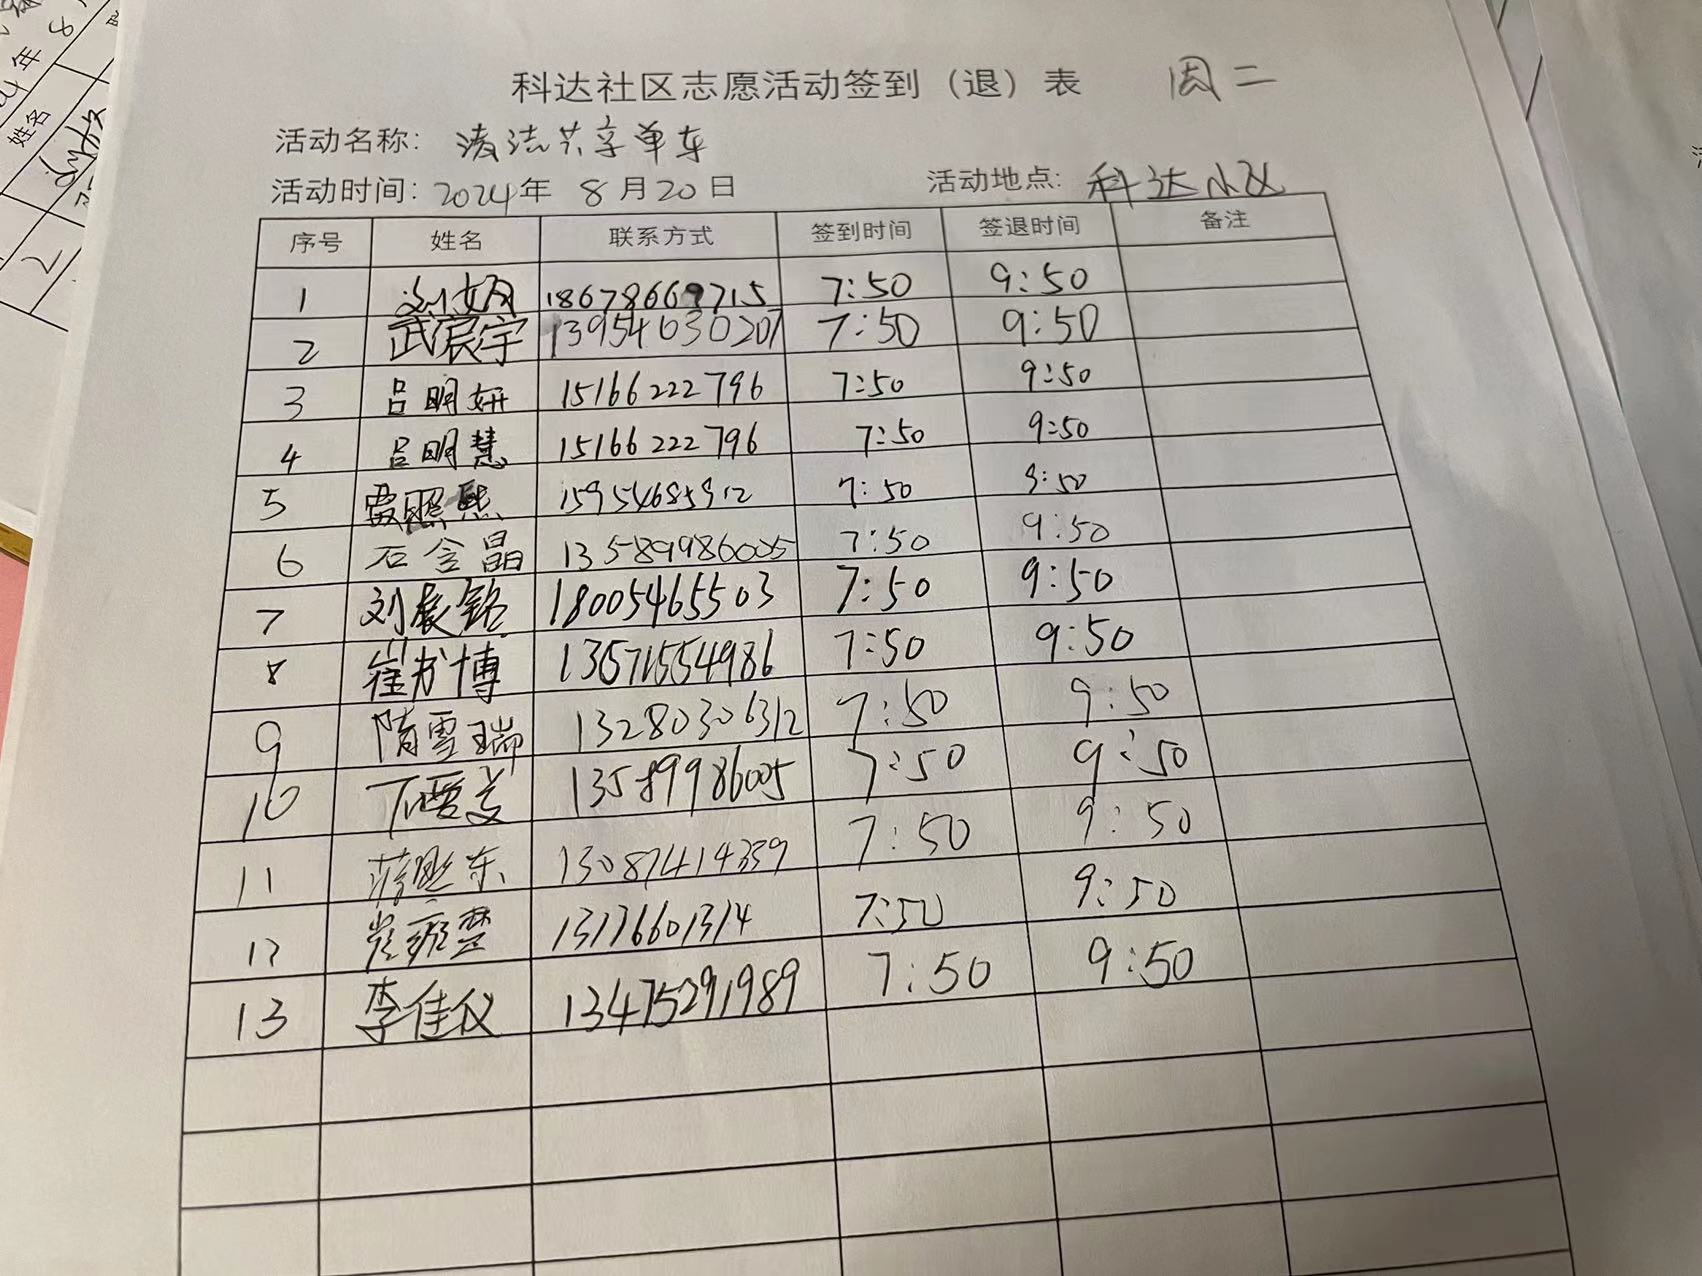 科达社区志愿活动签到（退）表 周二
活动名称: 清洁共享单车
活动时间: 2024年 8月20日 活动地点: 科达小区
序号 姓名 联系方式 签到时间 签退时间 备注
1 刘如月 18678669715 7:50 9:50
2 武宸宇 13954630207 7:50 9:50
3 吕明妍 15166222796 7:50 9:50
4 吕明慧 15166222796 7:50 9:50
5 贾照熙 15954685912 7:50 9:50
6 石含晶 13589986005 7:50 9:50
7 刘宸铭 18005465503 7:50 9:50
8 崔书博 7:50 9:50
9 隋雪瑞 13280306312 7:50 9:50
10 13589986005 7:50 9:50
11 蒋熙东 13087414339 7:50 9:50
12 13176601314 7:50 9:50
13 李佳仪 13475291989 7:50 9:50
姓名
2